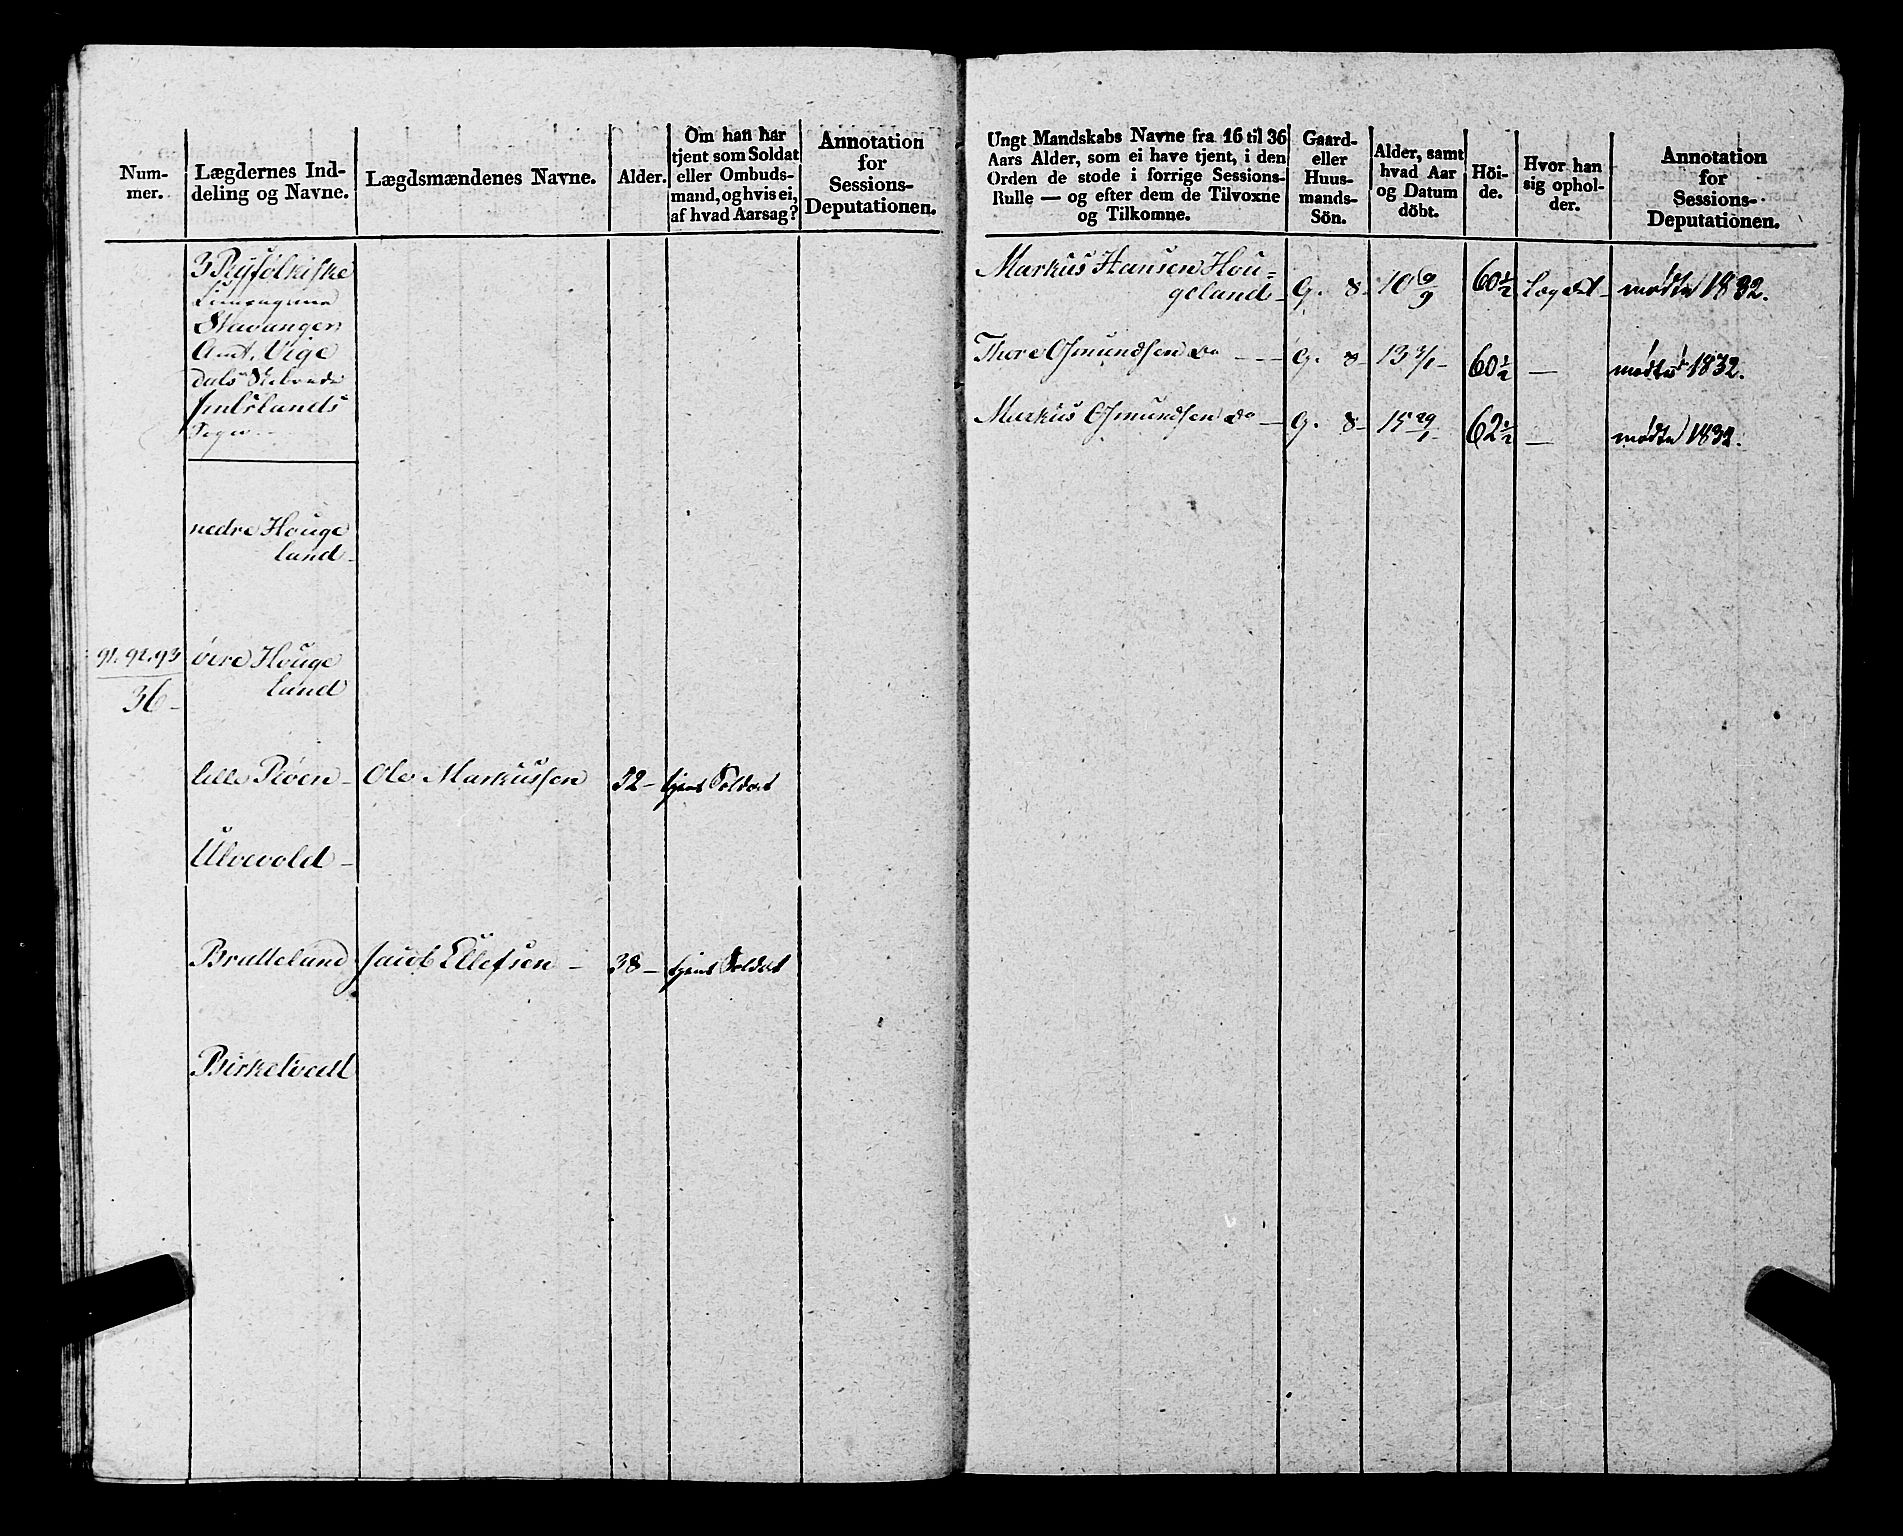 Num-
mer.
Lægdernes Ind-
deling og Navne.
Lægdsmændenes Navne.
Alder.
Om han har
tjent som Soldat
eller Ombuds-
mand, og hvis ei,
af hvad Aarsag?
Annotation
for
Sessions-
Deputationen.
3 Ryfølkiske
Stavanger
Amt. Vige
dals Skibrede
Imslands
Sogn
nedre Houge
land
91. 92. 93
36
övre Houge
land
lille Röen Ole Markussen 32 tjent Soldat
Ulvevold
Bratteland Jacob Ellefsen 38 tjent Soldat
Birketvedt
Ungt Mandskabs Navne fra 16 til 36
Aars Alder, som ei have tjent, i den
Orden de stode i forrige Sessions-
Rulle — og efter dem de Tilvoxne
og Tilkomne.
Gaard-
eller
Huus-
mands-
Sön.
Alder, samt
hvad Aar
og Datum
döbt.
Höi-
de.
Hvor han
sig ophol-
der.
Annotation
for
Sessions-
Deputationen.
Markus Hansen Hou=
geland G. 8 10 6/9 60 1/2 Lægdet mødte 1832.
Thore Osmundsen do G. 8 13 3/1 60 1/2 — mødte 1832.
Markus Osmundsen do G. 8 15 29/1 62 1/2 — mødte 1832.